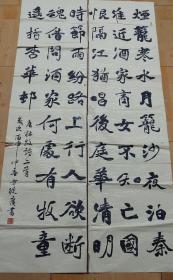 煙籠寒水月籠沙夜泊秦
淮近酒家商女不知亡國
恨隔江猶唱後庭華清明
時節雨紛紛路上行人欲斷
魂借問酒家何處有牧童
遥指杏華邨
唐杜牧詩二首